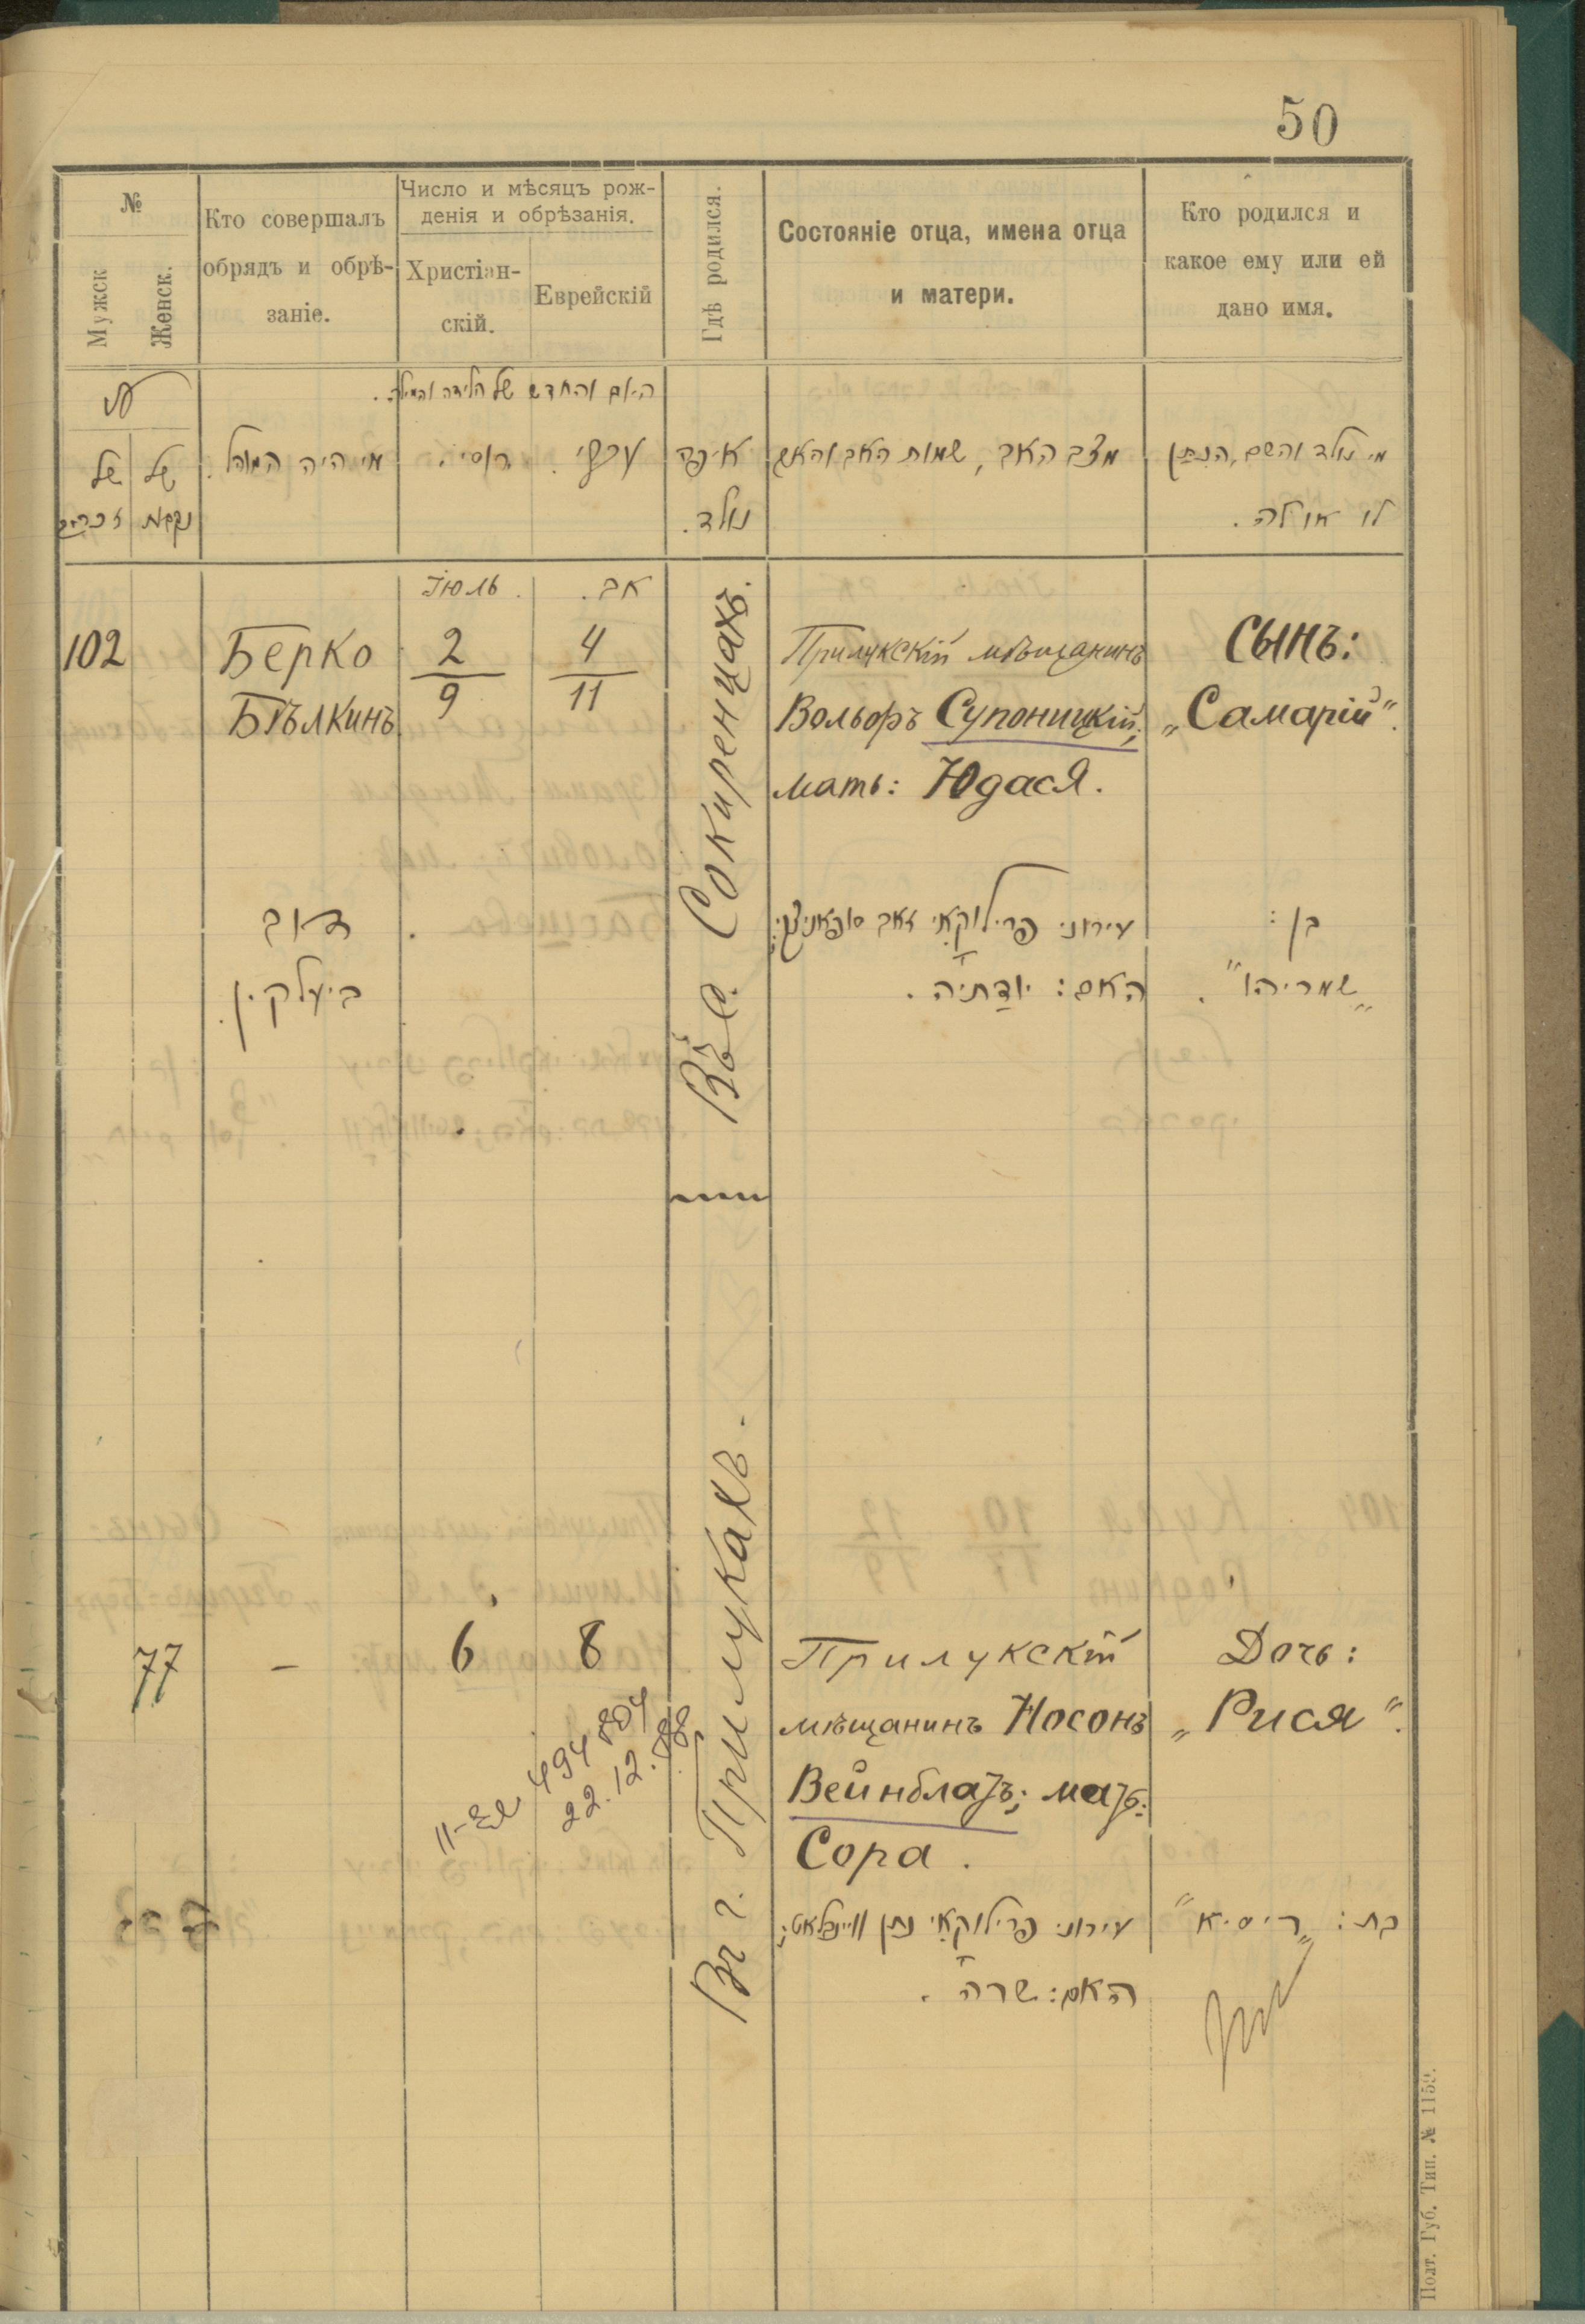 50
№
Мужск
Женск.
Кто совершалъ
обрядъ и обрѣ-
заніе.
Число и мѣсяцъ рож-
денія и обрѣзанія.
Христіан-
скій.
Еврейскій
Гдѣ родился.
Состояніе отца, имена отца
и матери.
Кто родился и
какое ему или ей
дано имя.
היום והחדש של הלידה והמילה.
של
זכרים
של
נקבות
מי היה המוהל.
רוסי.
עברי.
איפה
נולד.
מצב האב, שמות האב והאם
מי נולד והשם, הנתן
לו או לה.
Іюль.
אב.
102
Берко
Бѣлкинъ
2
9
4
11
Въ с. Сокиренцахъ.
Прилукскій мѣщанинъ
Вольфъ Супоницкій;
мать: Юдася.
Сынъ:
„Самарій“.
דוב
ביעלקין.
עירוני פרילוקאי זאב סופאניצקי;
האם: יודתיה.
בן:
„שמריהו“.
77
-
6
8
Въ г. Прилукахъ.
Прилукскій
мѣщанинъ Носонъ
Вейнблатъ; мать:
Сора.
Дочь:
„Рися“.
494804
22.12.
עירוני פרילוקאי נתן וויינבלאט;
האם: שרה.
בת: „ריסיא“
Полт. Губ. Тип. № 1159.